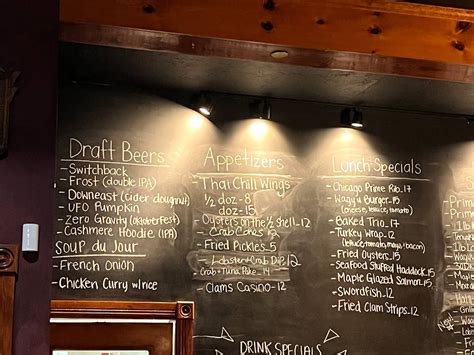 Draft Beers
- Switchback
- Frost (double IPA)
- Downeast (Cider donut)
- UFO Pumpkin
- Zero Gravity (Oktoberfest)
- Cashmere Hoodie (IPA)
Soup du Jour
- French Onion
- Chicken Curry w/rice
Appetizers
- Thai Chili Wings
1/2 doz-8
doz-15
- Oysters on the 1/2 shell-13
- Crab Cakes-12
- Fried Pickles-5
- Lobster+Crab Dip-12
- Crab+Tuna Poke-14
- Clams Casino-12
Lunch Specials
- Chicago Prime Rib-17
- Wagyu Burger-15
(cheese, lettuce, tomato)
- Baked Trio-17
- Turkey Wrap-12
(lettuce, tomato, mayo, bacon)
- Fried Oysters-15
- Seafood Stuffed Haddock-15
- Maple Glazed Salmon-15
- Swordfish-12
- Fried Clam Strips-12
DRINK SPECIALS